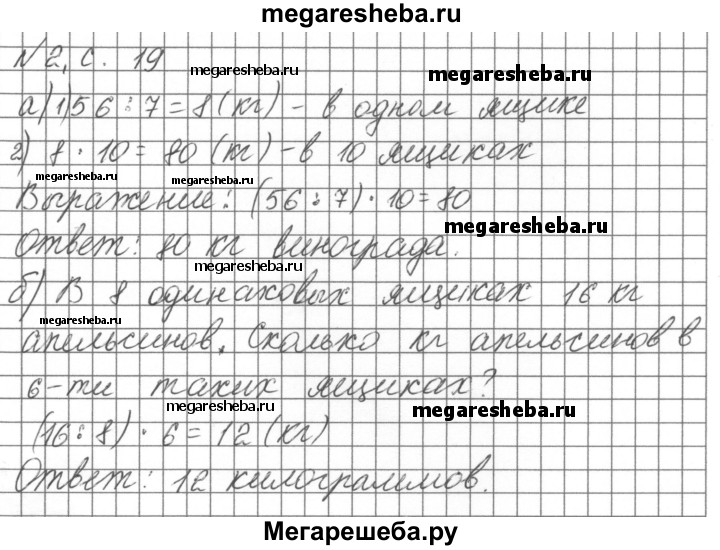 megaresheba.ru
№2, с. 19
megaresheba.ru
megaresheba.ru
а) 1) 56 : 7 = 8 (кг) - в одном ящике
2) 8 · 10 = 80 (кг) - в 10 ящиках
megaresheba.ru
megaresheba.ru
Выражение: (56 : 7) · 10 = 80
megaresheba.ru
Ответ: 80 кг винограда.
megaresheba.ru
б) В 8 одинаковых ящиках 16 кг
megaresheba.ru
апельсинов. Сколько кг апельсинов в
6-ти таких ящиках?
megaresheba.ru
megaresheba.ru
(16 : 8) · 6 = 12 (кг)
Ответ: 12 килограммов.
Мегарешеба.ру